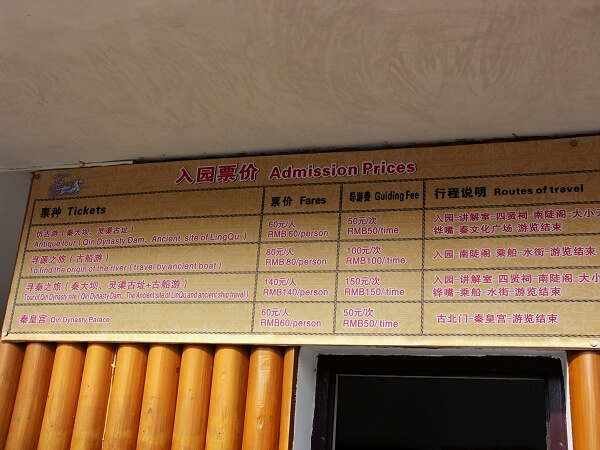 入园票价 Admission Prices
票种 Tickets 票价 Fares 导游费 Guiding Fee 行程说明 Routes of travel
仿古游（秦大坝、灵渠古址） 60元/人 50元/次 入园-讲解室-四贤祠-南陡阁-大小天
Antique tour ( Qin Dynasty Dam、Ancient site of LingQu ) RMB60/person RMB50/time 铧嘴-秦文化广场-游览结束
寻源之旅（古船游） 80元/人 100元/次 入园-南陡阁-乘船-水街-游览结束
To find the origin of the river ( travel by ancient boat ) RMB80/person RMB100/time
寻秦之旅（秦大坝、灵渠古址+古船游） 140元/人 150元/次 入园-讲解室-四贤祠-南陡阁-大小
Tour of Qin Dynasty site ( Qin Dynasty Dam、The Ancient site of LinQu and ancient ship travel ) RMB140/person RMB150/time 铧嘴-乘船-水街-游览结束
秦皇宫 Qin Dynasty Palace 60元/人 50元/次 古北门-秦皇宫-游览结束
RMB60/person RMB50/time